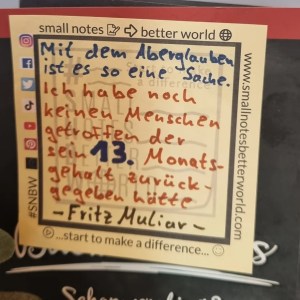 small notes better world
Mit dem Aberglauben
ist es so eine Sache.
Ich habe noch
keinen Menschen
getroffen der
sein 13. Monats-
gehalt zurück-
gegeben hätte
- Fritz Muliar -
...start to make a difference...
#SNBW
www.smallnotesbetterworld.com